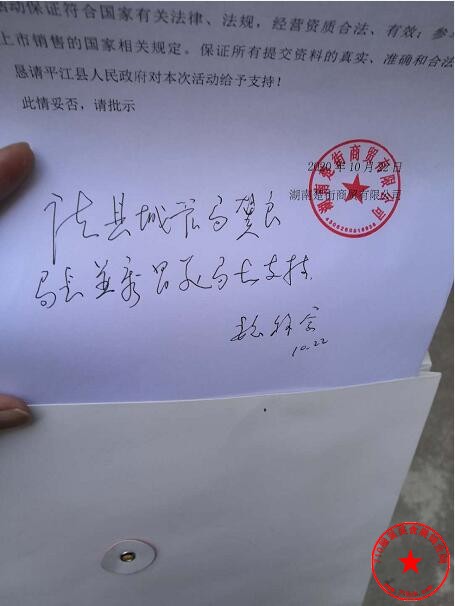 活动保证符合国家有关法律、法规，经营资质合法、有效；参与
上市销售的国家相关规定。保证所有提交资料的真实、准确和合法
恳请平江县人民政府对本次活动给予支持！
此情妥否，请批示
2020年10月22日
湖南楚街商贸有限公司
湖南楚街商贸有限公司
请县城管局龚良
局长并商
局长支持
10.22